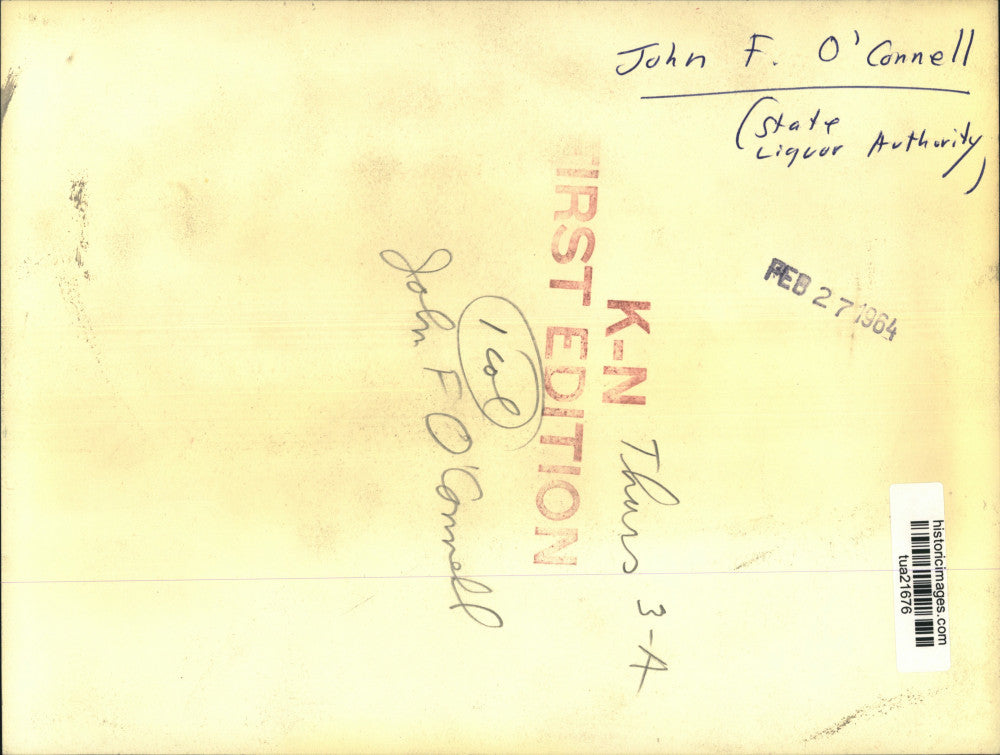 John F. O'Connell
(State
Liquor Authority)
FEB 27 1964
K-N Thurs 3-A
FIRST EDITION
1 col
John F O'Connell
historicimages.com
tua21676